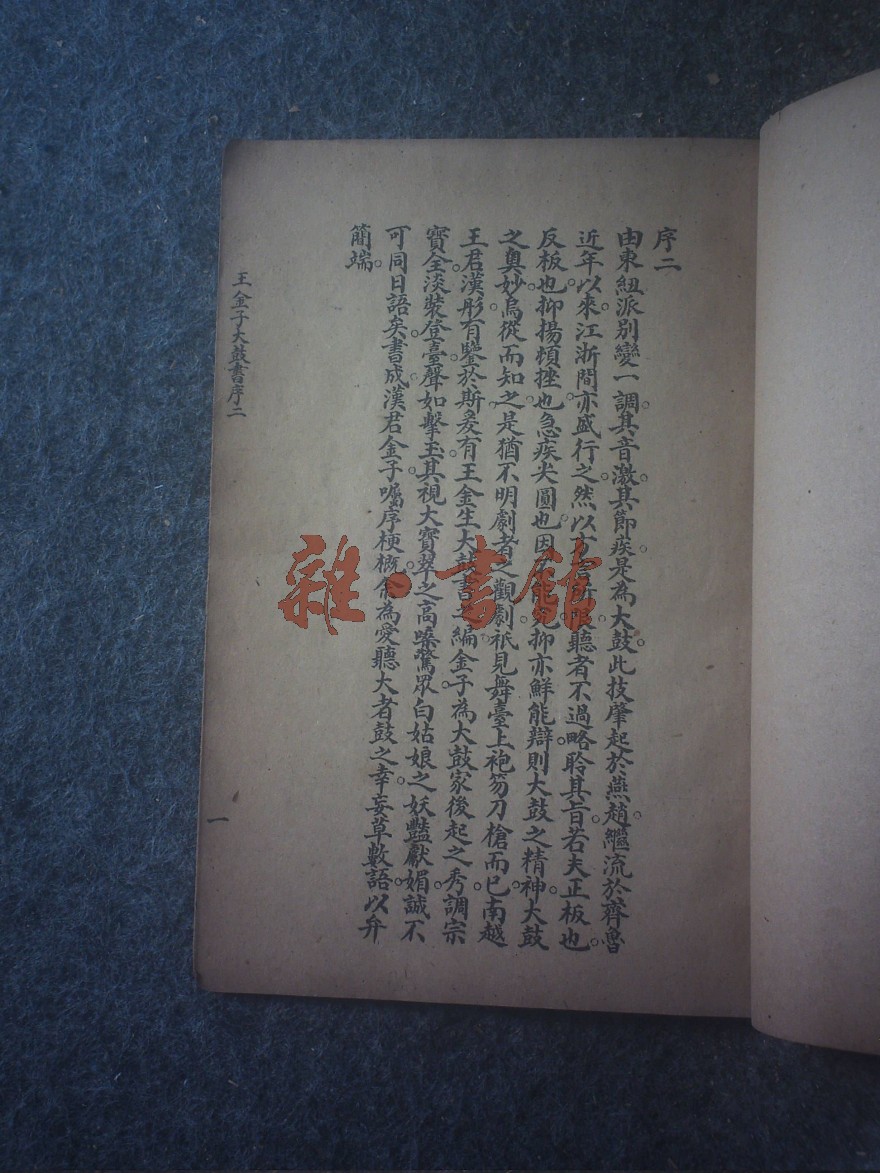 序二
由東紐派別變一調。其音激。其節疾。是為大鼓。此技肇起於燕趙。繼流於齊魯。
近年以來。江浙間亦盛行之。然以方言所限。聽者不過略聆其旨。若夫正板也。
反板也。抑揚頓挫也。急疾尖圓也。因不能見。抑亦鮮能辯。則大鼓之精神。大鼓
之奧妙。烏從而知之。是猶不明劇者之觀劇。祇見舞臺上袍笏刀槍而已。南越
王君漢彤。有鑒於斯。爰有王金生大鼓書之編。金子為大鼓家後起之秀。調宗
寶全。淡裝登臺。聲如擊玉。其視大寶翠之高嗓驚眾。白姑娘之妖豔獻媚。誠不
可同日語矣。書成。漢君金子囑序梗概。余為愛聽大者鼓之幸。妄草數語。以弁
簡端。
王金子大鼓書序二
一
雜·書館